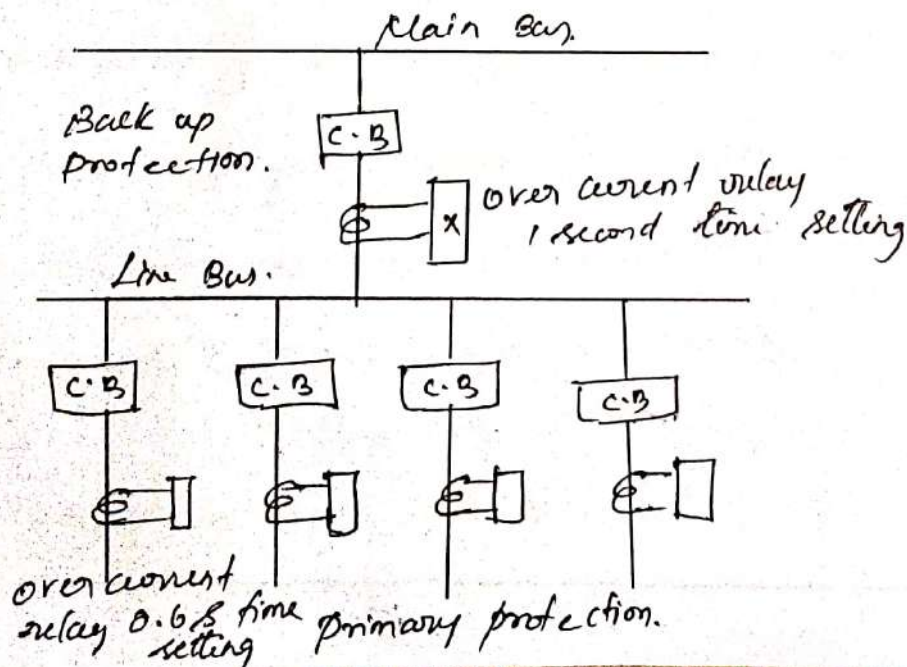 Main Bus.
Back up
protection.
C.B
X
over current relay
1 second time setting
Line Bus.
C.B
C.B
C.B
C.B
over current
relay 0.6s time
setting
primary protection.